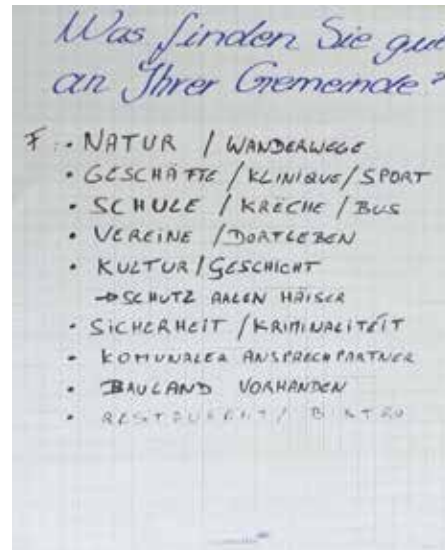 Was finden Sie gut
an Ihrer Gemeinde?
F: • NATUR / WANDERWEGE
• GESCHÄFTE / KLINIQUE / SPORT
• SCHULE / KRECHE / BUS
• VEREINE / DORTLEBEN
• KULTUR / GESCHICHT
→ SCHUTZ AALEN HÄISER
• SICHERHEIT / KRIMINALITÉIT
• KOMUNALER ANSPRECHPARTNER
• BAULAND VORHANDEN
• RESTAURENT / BISTRO